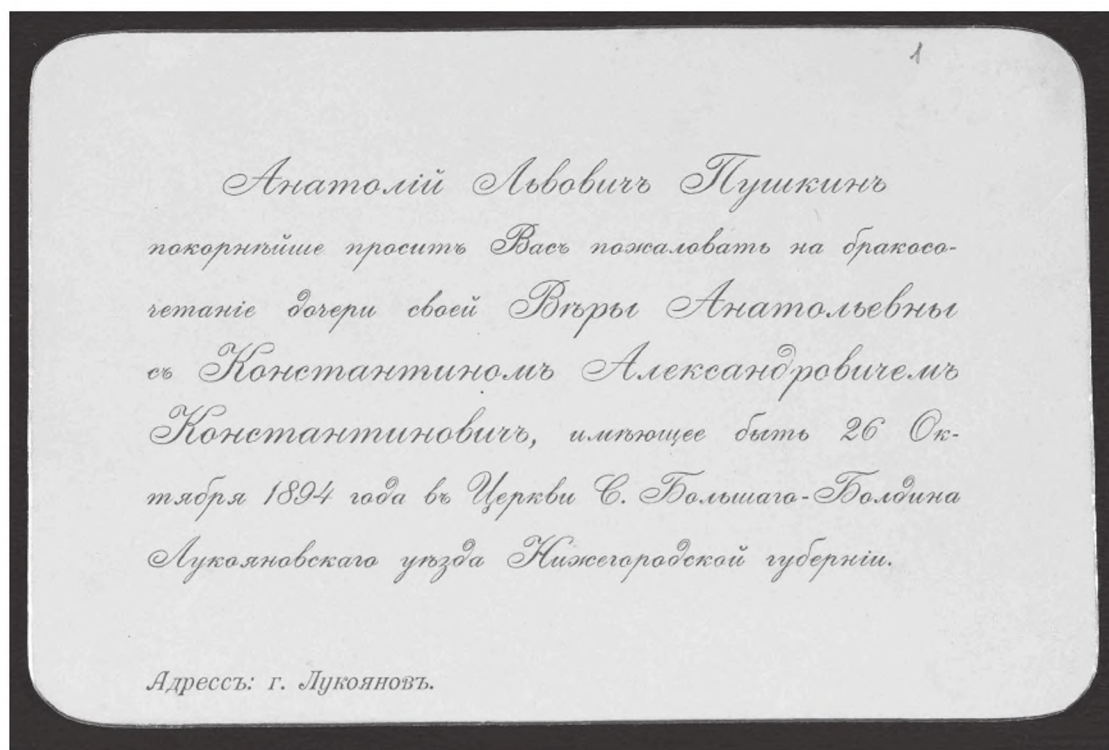 1
Анатолій Львовичъ Пушкинъ
покорнѣйше проситъ Васъ пожаловать на бракосо-
четаніе дочери своей Вѣры Анатольевны
съ Константиномъ Александровичемъ
Константиновичъ, имѣющее быть 26 Ок-
тября 1894 года въ Церкви С. Большаго-Болдина
Лукояновскаго уѣзда Нижегородской губерніи.
Адрессъ: г. Лукояновъ.